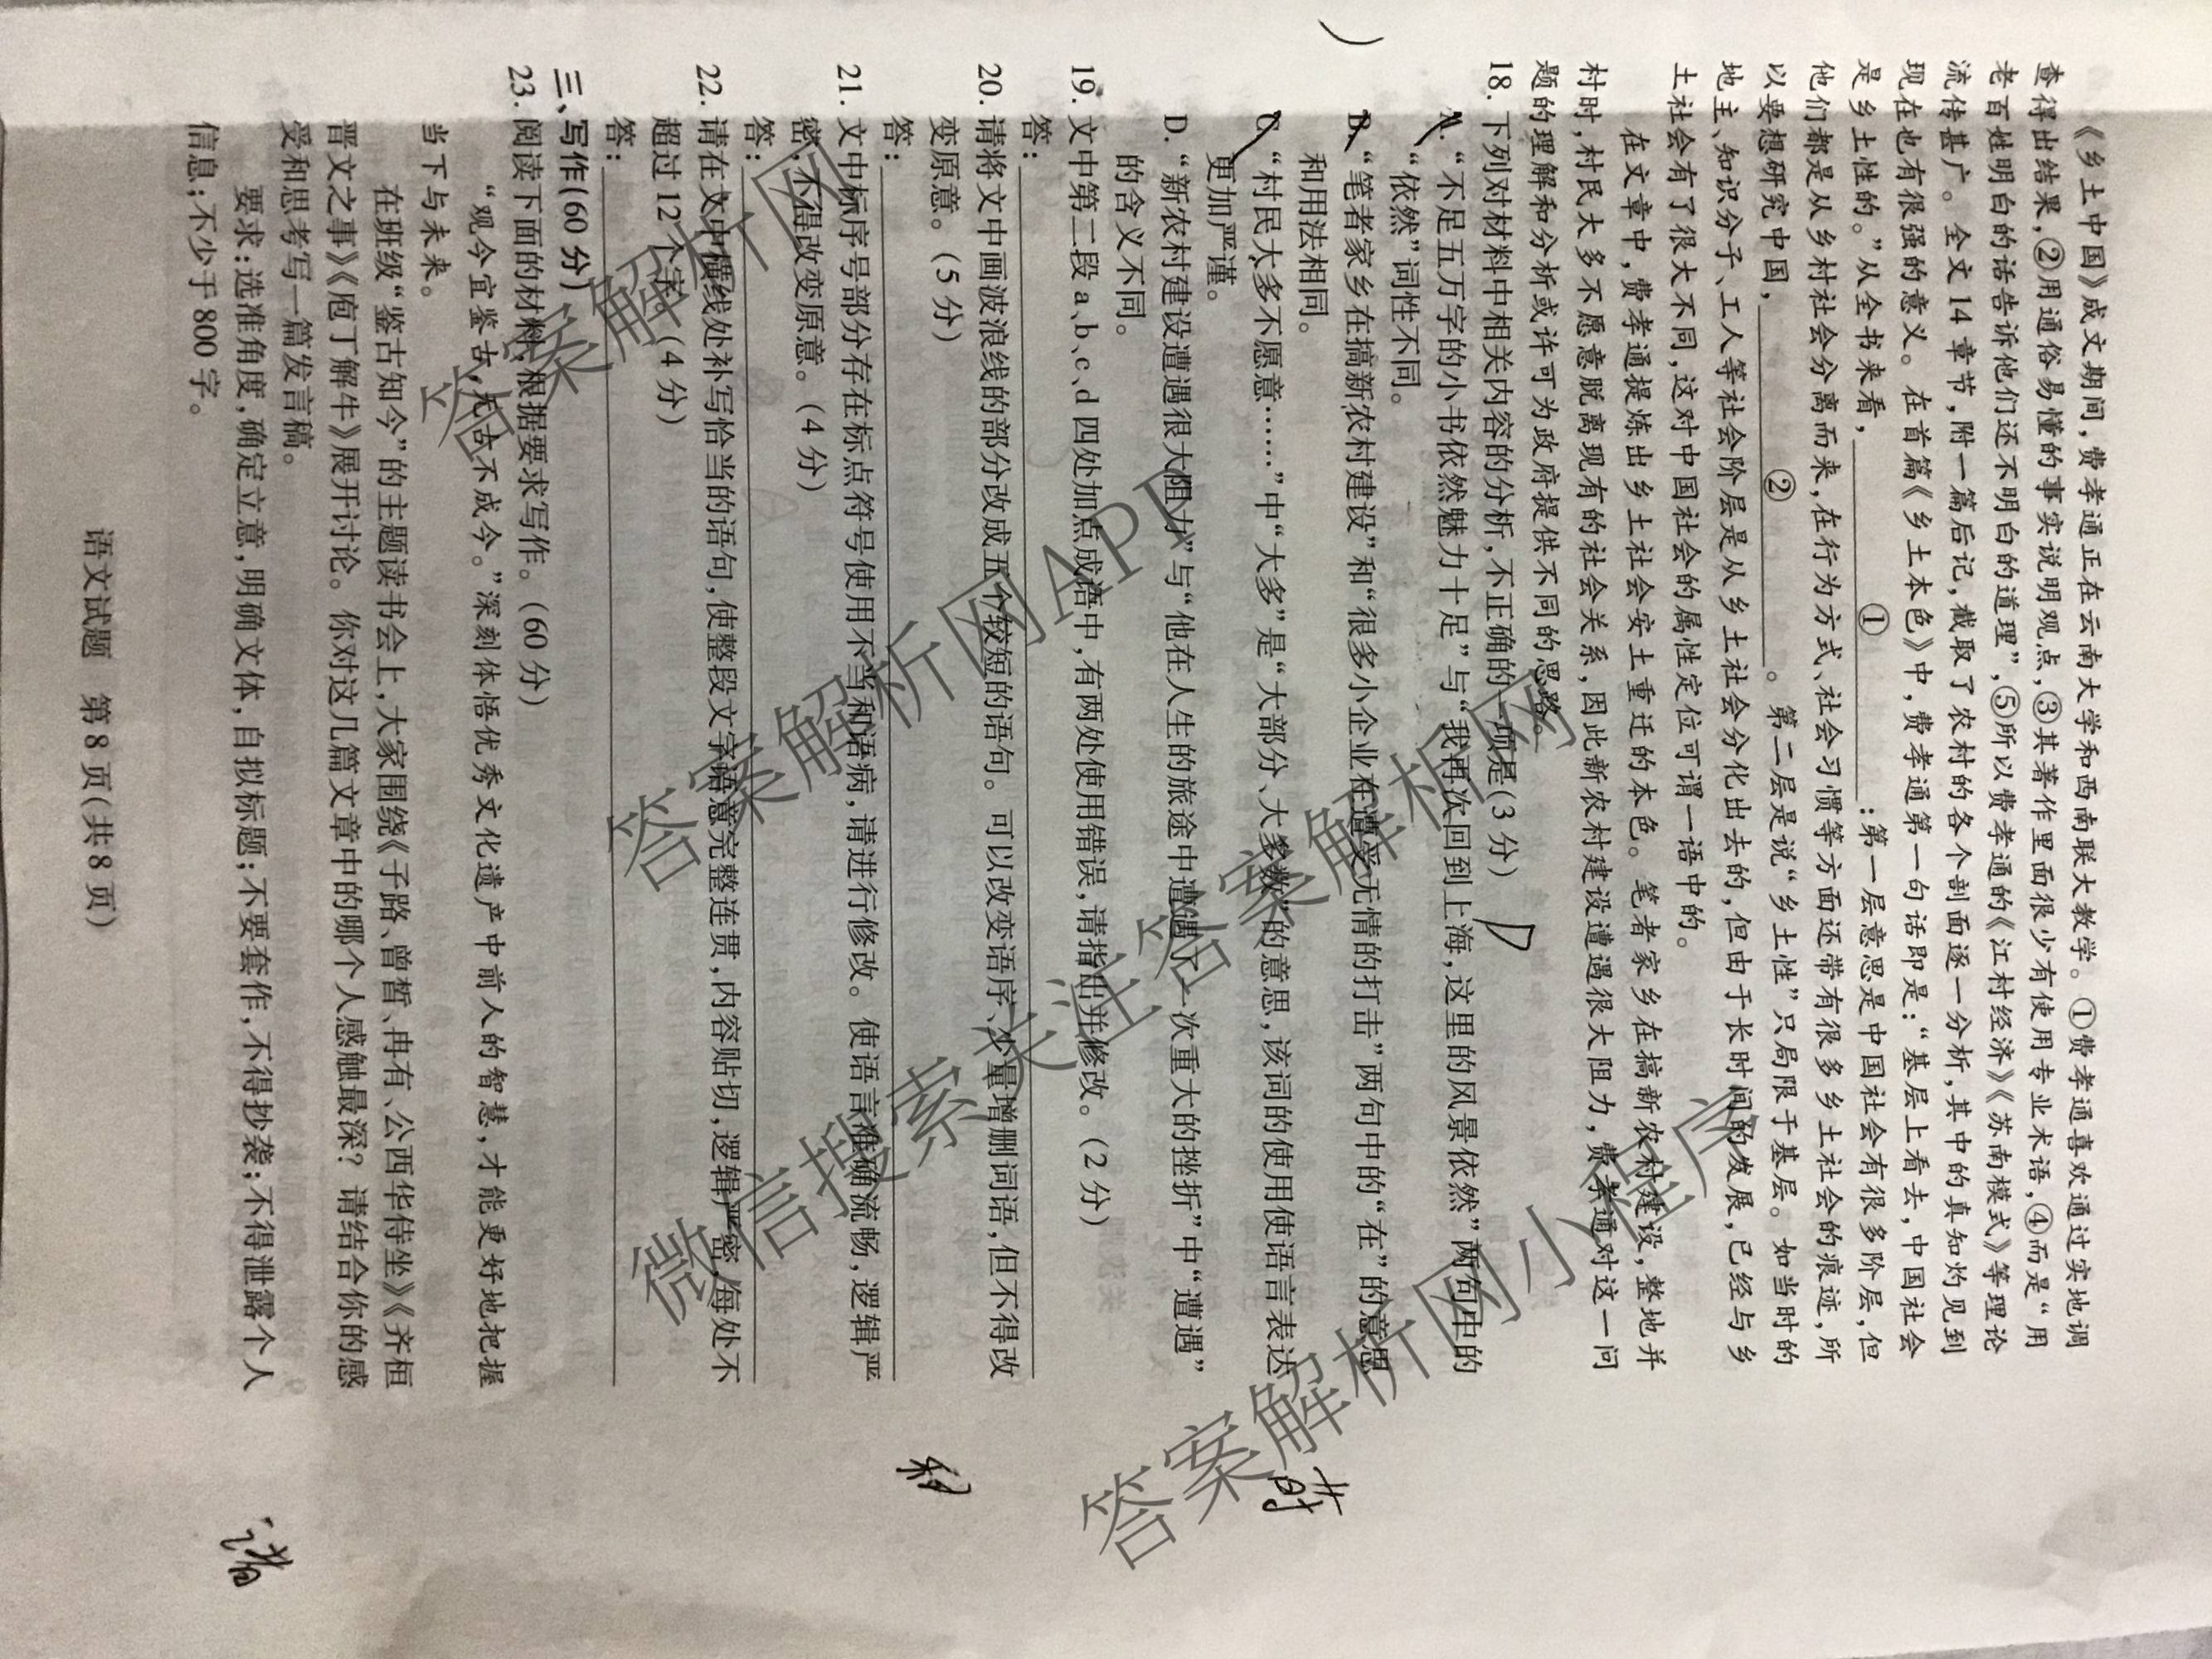 《乡土中国》成文期间，费孝通正在云南大学和西南联大教学。①费孝通喜欢通过实地调
查得出结果，②用通俗易懂的事实说明观点，③其著作里面很少有使用专业术语，④而是“用
老百姓明白的话告诉他们还不明白的道理”，⑤所以费孝通的《江村经济》《苏南模式》等理论
流传甚广。全文14章节，附一篇后记，截取了农村的各个剖面逐一分析，其中的真知灼见到
现在也有很强的意义。在首篇《乡土本色》中，费孝通第一句话即是：“基层上看去，中国社会
是乡土性的。”从全书来看，①；第一层意思是中国社会有很多阶层，但
他们都是从乡村社会分离而来，在行为方式、社会习惯等方面还带有很多乡土社会的痕迹，所
以要想研究中国，②。第二层是说“乡土性”只局限于基层。如当时的
地主、知识分子、工人等社会阶层是从乡土社会分化出去的，但由于长时间的发展，已经与乡
土社会有了很大不同，这对中国社会的属性定位可谓一语中的。
在文章中，费孝通提炼出乡土社会安土重迁的本色。笔者家乡在搞新农村建设，整地并
村时，村民大多不愿意脱离现有的社会关系，因此新农村建设遭遇很大阻力，费孝通对这一问
题的理解和分析或许可为政府提供不同的思路。
18. 下列对材料中相关内容的分析，不正确的一项是(3分) D
A. “不足五万字的小书依然魅力十足”与“我再次回到上海，这里的风景依然”两句中的
“依然”词性不同。
B. “笔者家乡在搞新农村建设”和“很多小企业在遭受无情的打击”两句中的“在”的意思
和用法相同。
C. “村民大多不愿意……”中“大多”是“大部分、大多数”的意思，该词的使用使语言表达
更加严谨。
D. “新农村建设遭遇很大阻力”与“他在人生的旅途中遭遇了一次重大的挫折”中“遭遇”
的含义不同。
19. 文中第二段a、b、c、d四处加点成语中，有两处使用错误，请指出并修改。(2分)
答：
20. 请将文中画波浪线的部分改成五个较短的语句。可以改变语序、少量增删词语，但不得改
变原意。(5分)
答：
21. 文中标序号部分存在标点符号使用不当和语病，请进行修改。使语言准确流畅，逻辑严
密，不得改变原意。(4分)
答：
22. 请在文中横线处补写恰当的语句，使整段文字语意完整连贯，内容贴切，逻辑严密，每处不
超过12个字。(4分)
答：
三、写作(60分)
23. 阅读下面的材料，根据要求写作。(60分)
“观今宜鉴古，无古不成今。”深刻体悟优秀文化遗产中前人的智慧，才能更好地把握
当下与未来。
在班级“鉴古知今”的主题读书会上，大家围绕《子路、曾皙、冉有、公西华侍坐》《齐桓
晋文之事》《庖丁解牛》展开讨论。你对这几篇文章中的哪个人感触最深？请结合你的感
受和思考写一篇发言稿。
要求：选准角度，确定立意，明确文体，自拟标题；不要套作，不得抄袭；不得泄露个人
信息；不少于800字。
语文试题 第8页(共8页)
答案解析网
答案解析网APP
微信搜索 关注答案解析网
答案解析网小程序